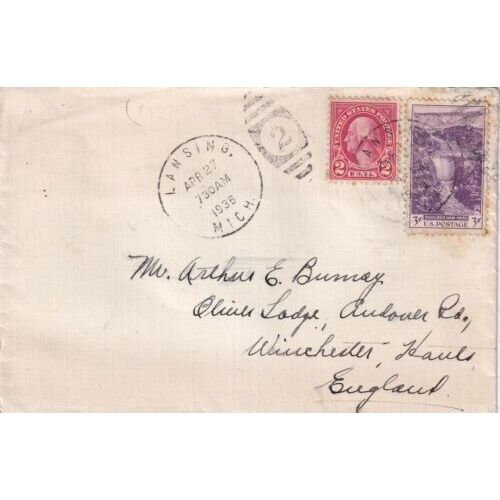 LANSING,
APR 27
730 AM
1936
MICH.
2
UNITED STATES POSTAGE
2 CENTS 2
3¢ U.S. POSTAGE 3¢
Mr. Arthur E. Burnay
Oliver Lodge, Andover Rd.,
Winchester, Hants
England.